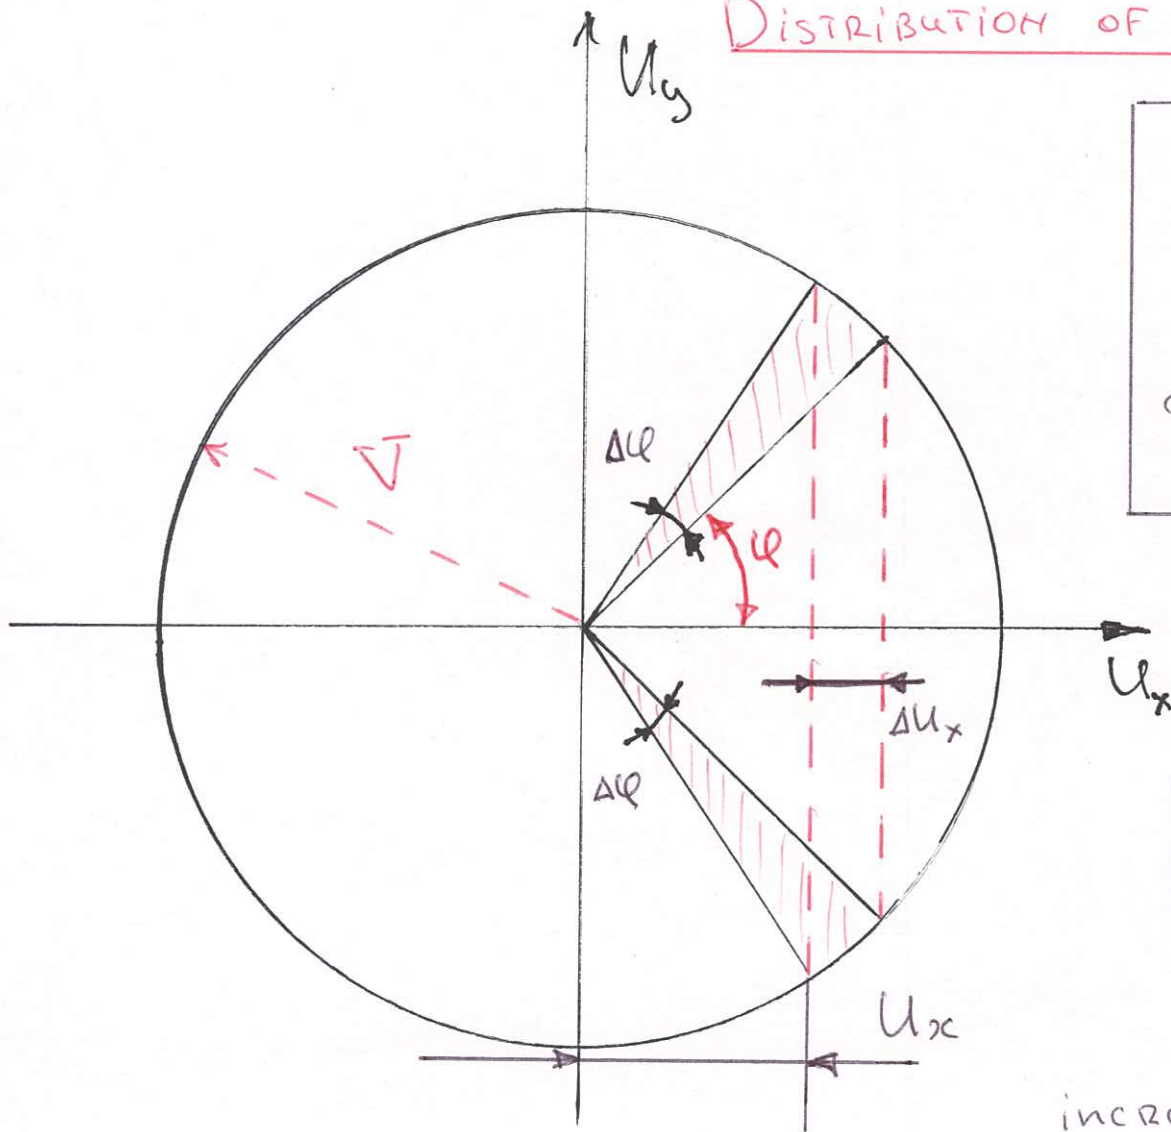 DISTRIBUTION OF
Uy
V
Δφ
φ
Ux
ΔUx
Δφ
Ux